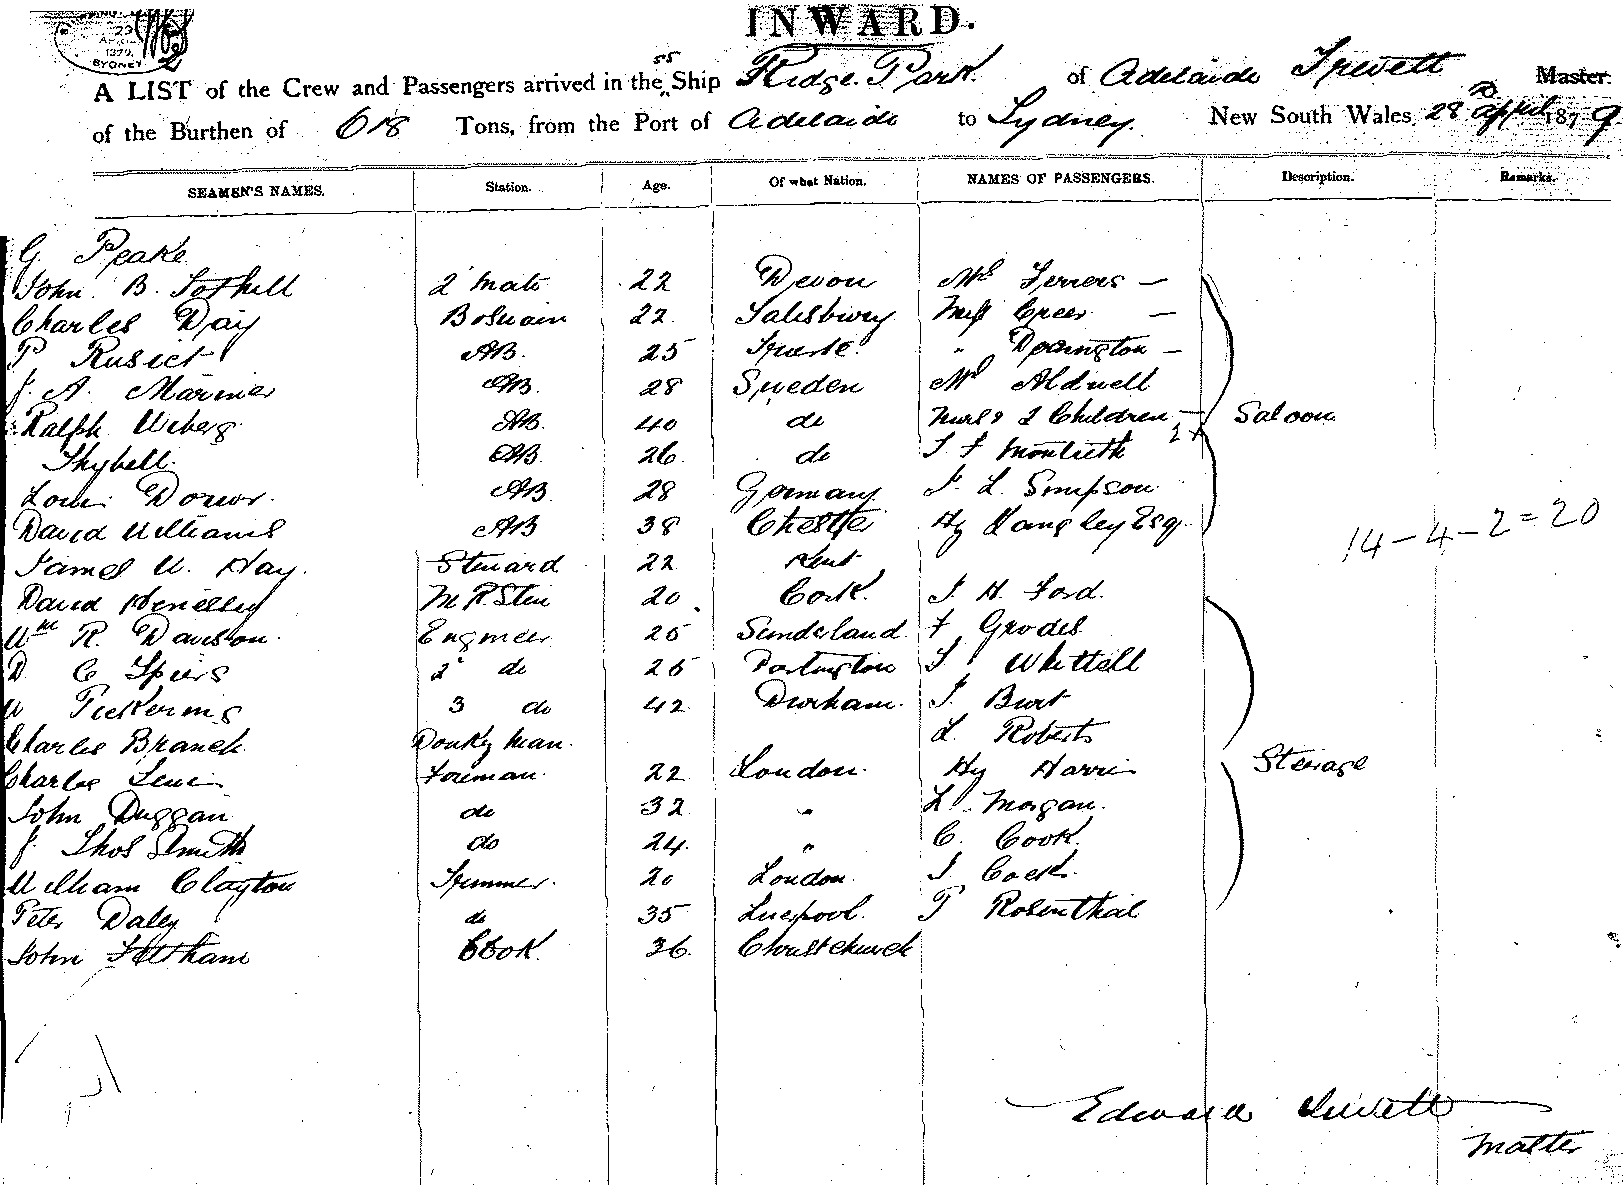 INWARD.
SYDNEY
A LIST of the Crew and Passengers arrived in the SS Ship Ridge Park of Adelaide Trevett Master.
of the Burthen of 618 Tons, from the Port of Adelaide to Sydney. New South Wales, 28 April 1879
SEAMEN'S NAMES. Station. Age. Of what Nation. NAMES OF PASSENGERS. Description. Remarks.
G. Peake
John B. Tothill 2 Mate 22 Devon Mr Ferrers —
Charles Day Bosuain 22 Salisbury Miss Greer —
P Rusict AB. 25 " Dorington —
J. A. Mariner AB. 28 Sweden Mr Aldwell
Ralph Weberg. AB. 40 do Mrs & 2 Children — Saloon
Thybell. AB. 26 do J F Monteith
Louis Dorior. AB 28 Germany J. L. Simpson
David Williams AB 38 Chester Hy Langley Esq.
14 — 4 — 2 = 20
James W. Hay. Steward 22 Kent
David Henelley M R Stew 20 Cork. J. H. Ford.
Wm R. Davison. Engineer 25 Sunderland F Grodes
D C Spiers 2 do 25 Darlington J. Whittell
W Pickering 3 do 42 Durham. J. Burt
Charles Branch Donkey Man. L. Roberts
Charles Foreman. 22 London. Hy Harris Steerage
John Duggan do 32 " L. Morgan.
J. Thos Smith do 24. " C. Cook.
William Clayton Trimmer. 20 London. J. Cock.
Peter Daley do 35 Liverpool. P Rosenthal
John Feltham Cook. 36. Christchurch
Edward Trevett
Master